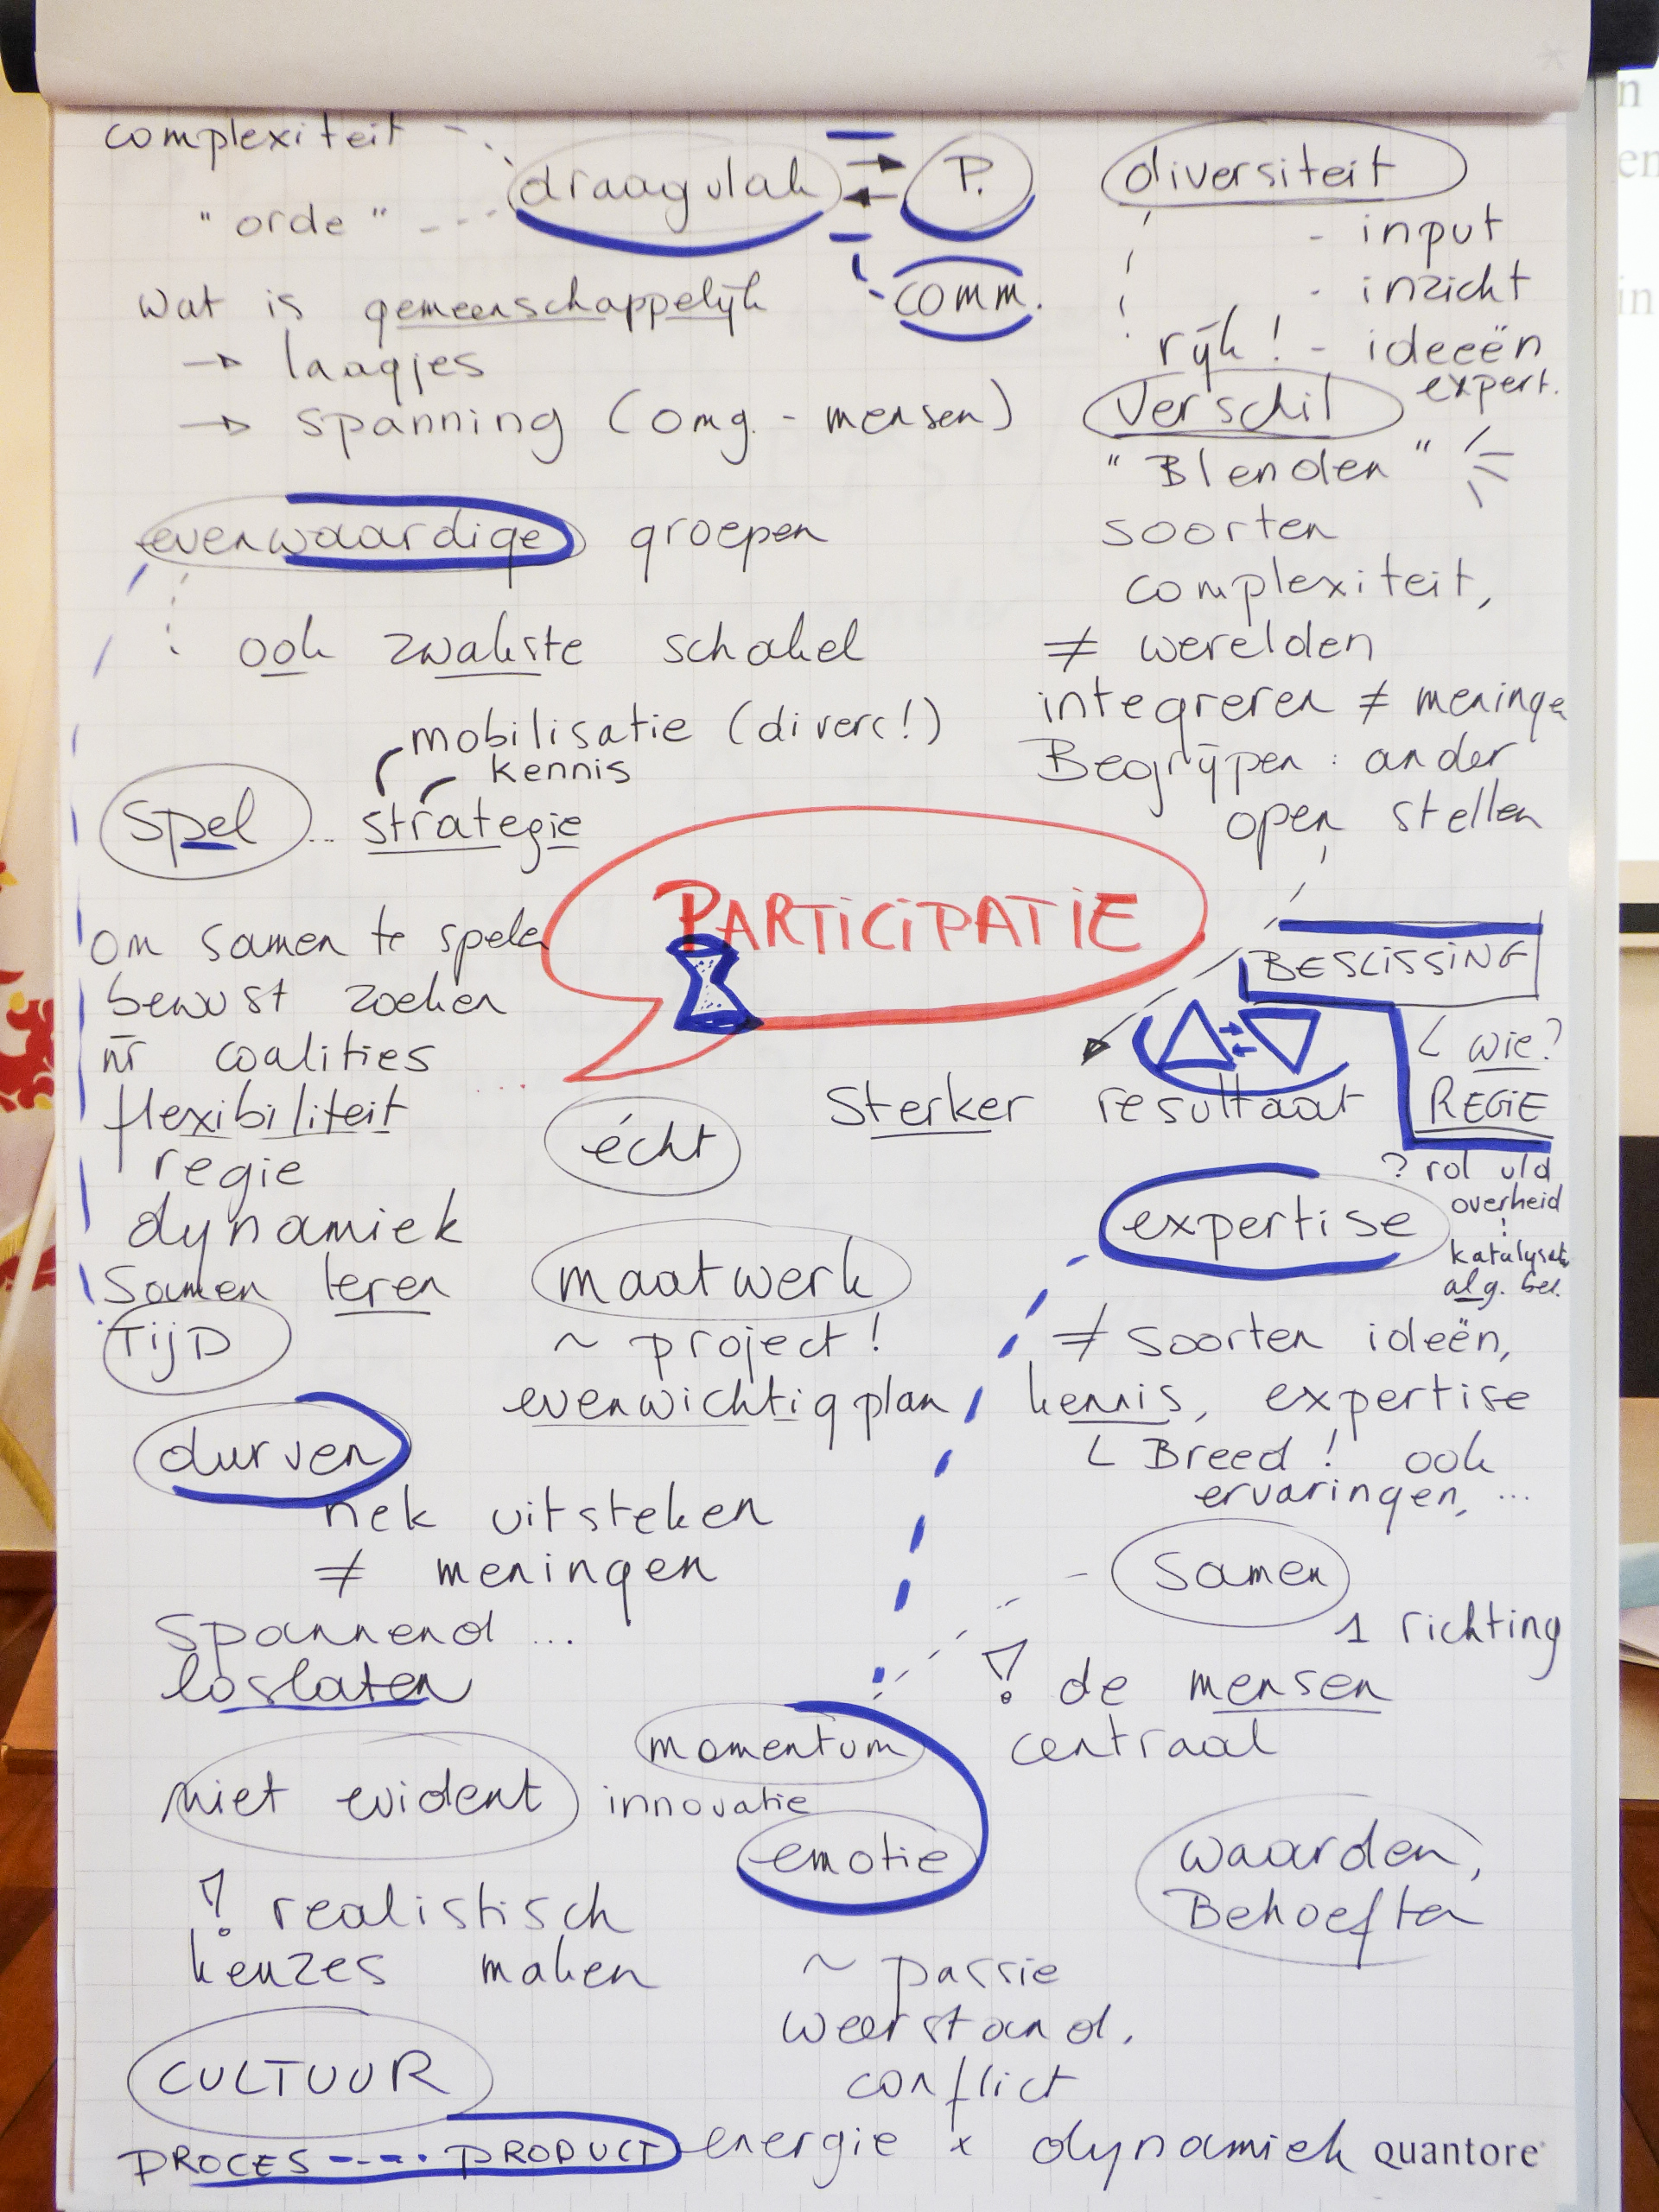 complexiteit
"orde"
draagvlak
P.
comm.
wat is gemeenschappelijk
→ laagjes
→ spanning (omg. - mensen)
diversiteit
- input
- inzicht
rijk! - ideeën
expert.
Verschil
"Blenden"
soorten
complexiteit,
≠ werelden
integreren ≠ meninge
Begrijpen: ander
open stellen
evenwaardige groepen
ook zwakste schakel
mobilisatie (divers!)
kennis
spel ... strategie
PARTICIPATIE
om samen te spelen
bewust zoeken
nr coalities
flexibiliteit
regie
dynamiek
Samen leren
TijD
BESLISSING
L wie?
REGIE
Sterker resultaat
? rol vld
overheid
katalysat
alg. bel.
écht
maatwerk
~ project!
evenwichtig plan
expertise
≠ soorten ideën,
kennis, expertise
L Breed! ook
ervaringen, ...
durven
nek uitsteken
≠ meningen
spannend ...
loslaten
Samen
1 richting
! de mensen
centraal
momentum
niet evident
innovatie
emotie
waarden,
Behoeften
! realistisch
keuzes maken
~ passie
weerstand,
conflict
energie x dynamiek
CULTUUR
PROCES ---- PRODUCT
quantore